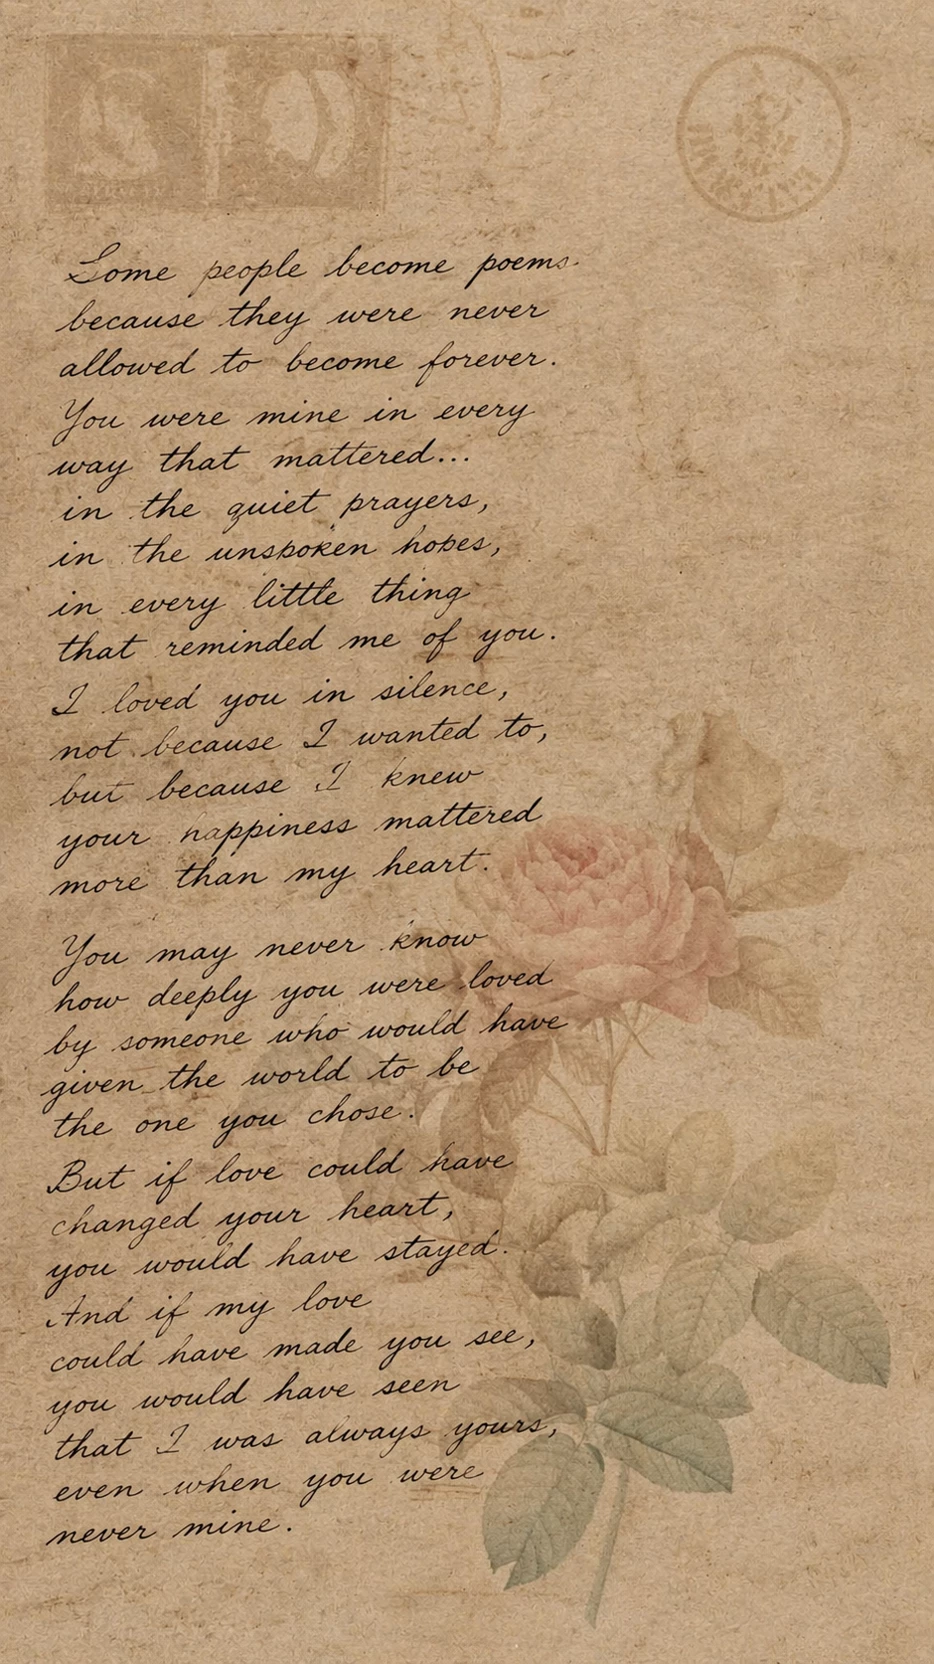 Some people become poems
because they were never
allowed to become forever.
You were mine in every
way that mattered...
in the quiet prayers,
in the unspoken hopes,
in every little thing
that reminded me of you.
I loved you in silence,
not because I wanted to,
but because I knew
your happiness mattered
more than my heart.
You may never know
how deeply you were loved
by someone who would have
given the world to be
the one you chose.
But if love could have
changed your heart,
you would have stayed.
And if my love
could have made you see,
you would have seen
that I was always yours,
even when you were
never mine.